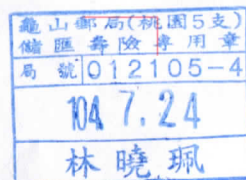 龜山郵局(桃園5支)
儲匯壽險專用章
局號012105-4
104.7.24
林曉珮